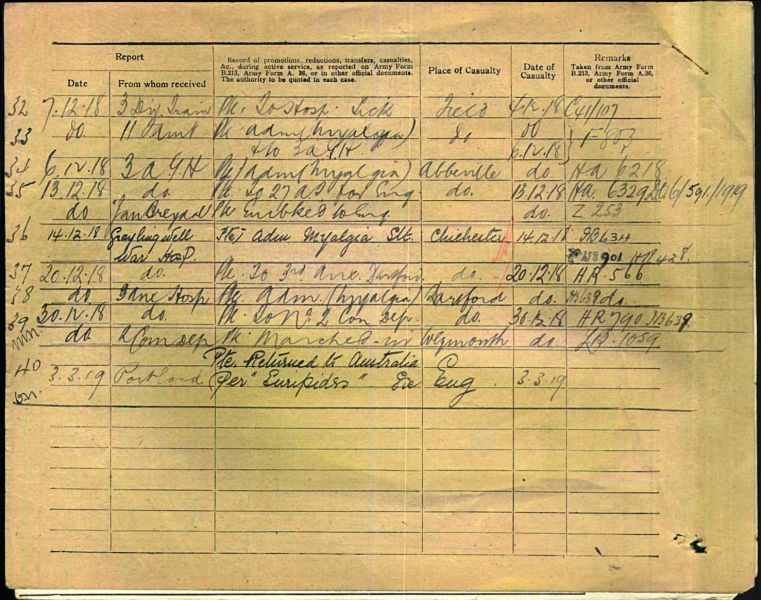 Report
Record of promotions, reductions, transfers, casualties,
&c., during active service, as reported on Army Form
B.213, Army Form A. 36, or in other official documents.
The authority to be quoted in each case.
Place of Casualty
Date of
Casualty
Remarks
Taken from Army Form
B.213, Army Form A.36,
or other official
documents.
Date From whom received
32 7.12.18 3 Div. Train Pte. To Hosp. Sick Field 4.12.18 C41/107
33 do 11 Pte. adm (Myalgia) do do
& to 3 a G H 6.12.18
34 6.12.18 3 a G H Pte. Adm (Myalgia) Abbeville do. HA 6218
35 13.12.18 do. Pte. To 27 for Eng. do. 13.12.18 HA 6329
do Pte. Embked to Eng do. Z 253
36 14.12.18 Graylingwell War Hosp. Pte. Adm Myalgia Slt. Chichester 14.12.18 HB 634
37 20.12.18 do. Pte. To 3rd Aux. Dartford do. 20.12.18 HR 566
38 do. 3 Aux Hosp Pte. Adm. (Myalgia) Dartford HB639 do.
39 30.12.18 do. Pte. To No 2 Com Dep. do. 30.12.18 HR 790 HB639
do. 2 Com Dep Pte. Marched in Weymouth do.
40
3.3.19 Portland Pte. Returned to Australia
Per "Euripides" Ex Eng 3.3.19